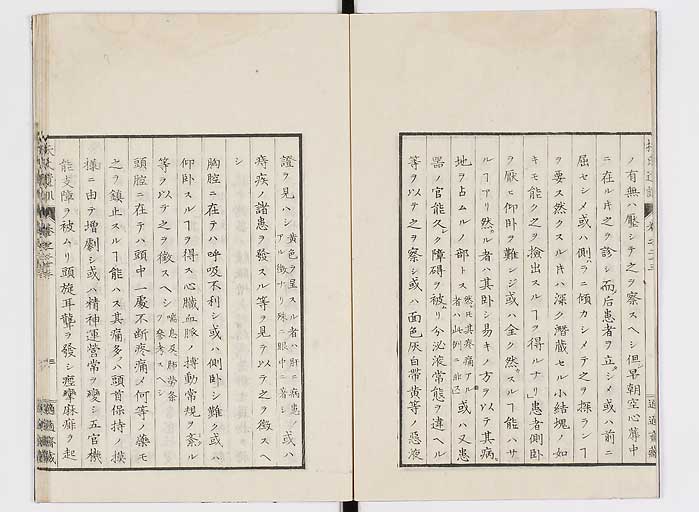 ノ有無ハ壓シテ之ヲ察スヘシ但早朝空心蓐中
ニ在ル片之ヲ診シ而后患者ヲ立シメ或ハ前ニ
屈セシメ或ハ側ラニ傾カシメテ之ヲ探ランヿ
ヲ要ス然クスル片ハ深ク潜蔵セル小結塊ノ如
キモ能ク之ヲ撿出スルヿヲ得ルナリ患者側卧
ヲ厭ヒ仰卧ヲ難ンジ或ハ全ク然スルヿ能ハサ
ルヿアリ然ル者ハ其卧シ易キノ方ヲ以テ其病
地ヲ占ムルノ部トス 然圧其疼痛アル者ハ此例ニ非ス 或ハ又患
器ノ官能久ク障碍ヲ被リ分泌液常態ヲ違ヘル
等ヲ以テ之ヲ察シ或ハ面色灰白帯黄等ノ惡液
證ヲ見ハシ 黄色ヲ呈スル者ハ肝ニ病患アル徴ナリ殊ニ眼中ニ著シ 或ハ
痔疾ノ諸患ヲ發スル等ヲ見テ以テ之ヲ徴スヘ
シ
胸腔ニ在テハ呼吸不利シ或ハ側卧シ難ク或ハ
仰卧スルヿヲ得ス心臓血脈ノ搏動常規ヲ紊ル
等ヲ以テ之ヲ徴スヘシ 喘息及肺労条ヲ參考スヘシ
頭腔ニ在テハ頭中一處不断疼痛メ何等ノ藥モ
之ヲ鎮止スルヿ能ハス其痛多ハ頭首保持ノ摸
様ニ由テ増劇シ或ハ精神運營常ヲ變シ五官機
能支障ヲ被ムリ頭旋耳聾ヲ發シ痙攣麻痺ヲ起